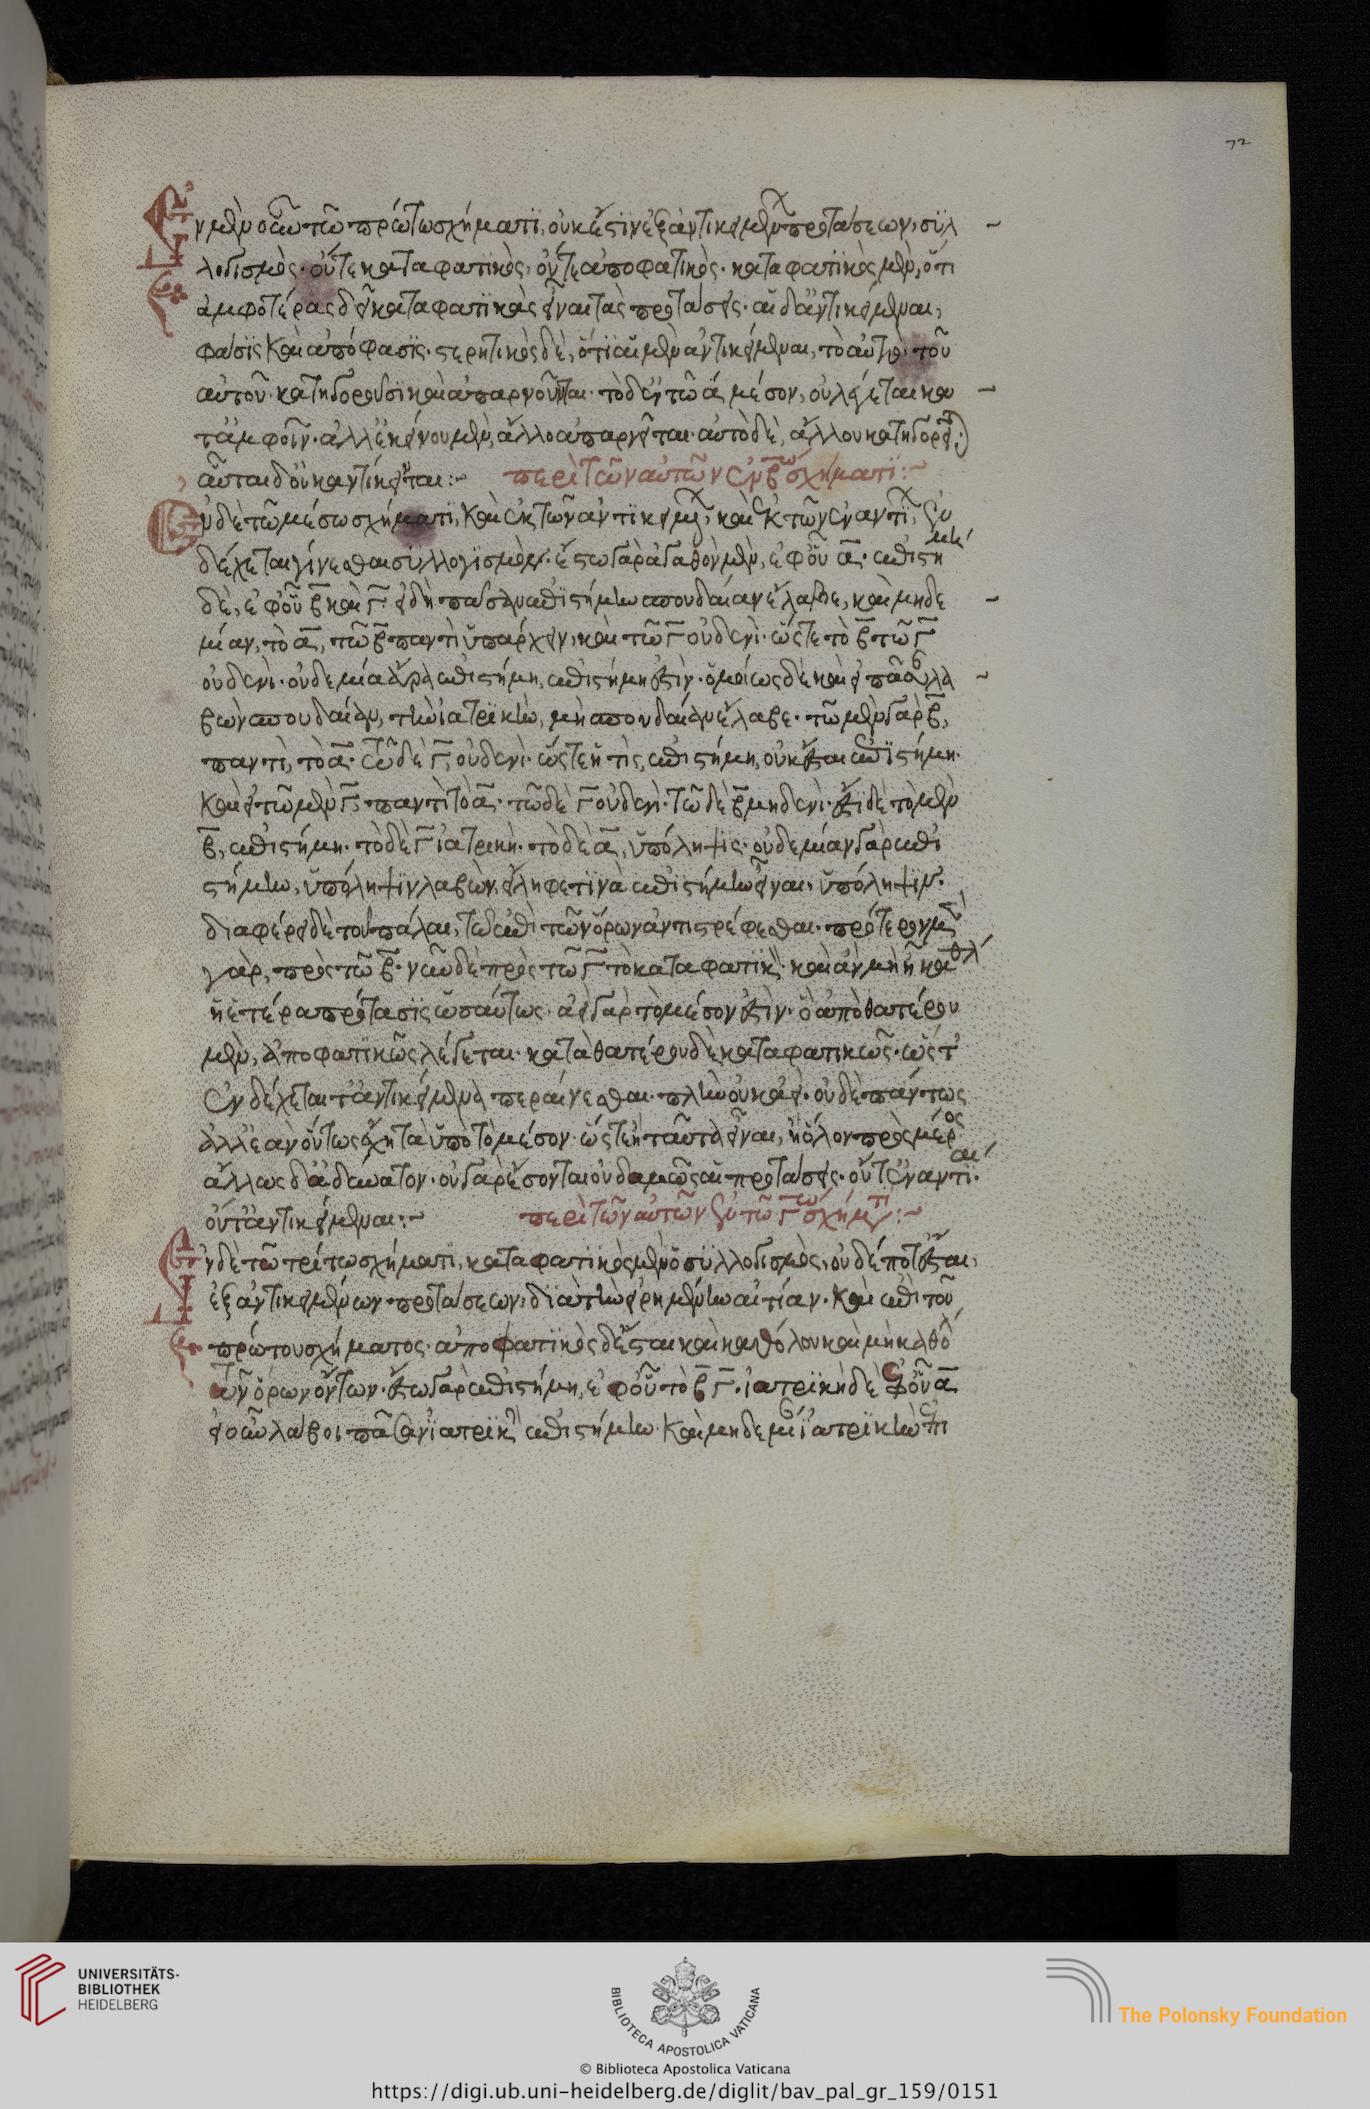 72
Ἐν μὲν οὖν τῶ πρώτω σχήματι, οὐκ ἔστιν ἐξ ἀντικειμένων προτάσεων, συλ
λογισμός· οὔτε καταφατικὸς, οὔτε ἀποφατικός· καταφατικὸς μὲν, ὅτι
ἀμφοτέρας δεῖ καταφατικὰς εἶναι τὰς προτάσεις· αἱ δ' ἀντικείμεναι,
φάσις καὶ ἀπόφασις· στερητικὸς δὲ, ὅτι αἱ μὲν ἀντικείμεναι, τὸ αὐτὸ τοῦ
αὐτοῦ κατηγοροῦσι καὶ ἀπαρνοῦνται· τὸ δ' ἐν τῶ α μέσον, οὐ λέγεται κα
τ' ἀμφοῖν· ἀλλ' ἐκείνου μὲν, ἄλλο ἀπαρνεῖται· αὐτὸ δὲ, ἄλλου κατηγορεῖ·
αὗται δ' οὐκ ἀντίκεινται:~ περὶ τῶν αὐτῶν ἐν τῶ β σχήματι:~
Ἐν δὲ τῶ μέσω σχήματι, καὶ ἐκ τῶν ἀντικειμένων, καὶ ἐκ τῶν ἐναντίων, ἐν
δέχεται γίνεσθαι συλλογισμόν· ἔστω γὰρ ἀγαθὸν μὲν, ἐφ' οὗ α· ἐπιστήμη
δὲ, ἐφ' οὗ β καὶ γ· εἰ δὴ πᾶσαν ἐπιστήμην σπουδαίαν ἔλαβε, καὶ μηδε
μίαν, τὸ α, τῶ β παντὶ ὑπάρχει, καὶ τῶ γ οὐδενί· ὥστε τὸ β τῶ γ
οὐδενί· οὐδεμία ἄρα ἐπιστήμη, ἐπιστήμη ἐστίν· ὁμοίως δὲ καὶ εἰ πᾶσαν λα
βὼν σπουδαίαν, τὴν ἰατρικὴν, μὴ σπουδαίαν ἔλαβε· τῶ μὲν γὰρ β,
παντὶ, τὸ α· τῶ δὲ γ, οὐδενί· ὥστε ἡ τὶς ἐπιστήμη, οὐκ ἔσται ἐπιστήμη·
καὶ εἰ τῶ μὲν γ παντὶ τὸ α· τῶ δὲ γ οὐδενί· τῶ δὲ β μηδενί· ἔστι δὲ τὸ μὲν
β, ἐπιστήμη· τὸ δὲ γ ἰατρική· τὸ δὲ α, ὑπόληψις· οὐδεμίαν γὰρ ἐπι
στήμην, ὑπόληψιν λαβὼν, εἴληφέ τινα ἐπιστήμην εἶναι ὑπόληψιν·
διαφέρει δὲ τοῦ πάλαι, τῶ ἐπὶ τῶν ὅρων ἀντιστρέφεσθαι· πρότερον μὲν
γὰρ, πρὸς τῶ β· νῦν δὲ πρὸς τῶ γ τὸ καταφατικόν· καὶ ἂν μὴ ἦ καθόλου
ἡ ἑτέρα πρότασις ὡσαύτως· ἀεὶ γὰρ τὸ μέσον ἐστὶν· ὃ ἀπὸ θατέρου
μὲν, ἀποφατικῶς λέγεται· κατὰ θατέρου δὲ καταφατικῶς· ὥστ'
ἐνδέχεται τἀντικείμενα περαίνεσθαι· πλὴν οὐκ ἀεὶ· οὐδὲ πάντως
ἀλλ' ἐὰν οὕτως ἔχη τὰ ὑπὸ τὸ μέσον· ὥστ' ἢ ταὐτὰ εἶναι, ἢ ὅλον πρὸς μέρος
ἄλλως δ' ἀδύνατον· οὐ γὰρ ἔσονται οὐδαμῶς αἱ προτάσεις· οὔτ' ἐναντίαι·
οὔτ' ἀντικείμεναι:~ περὶ τῶν αὐτῶν ἐν τῶ γ σχήματι:~
Ἐν δὲ τῶ τρίτω σχήματι, καταφατικὸς μὲν ὁ συλλογισμὸς, οὐδέποτ' ἔσται,
ἐξ ἀντικειμένων προτάσεων, διὰ τὴν εἰρημένην αἰτίαν· καὶ ἐπὶ τοῦ
πρώτου σχήματος· ἀποφατικὸς δ' ἔσται καὶ καθόλου καὶ μὴ καθόλου
τῶν ὅρων ὄντων· ἔστω γὰρ ἐπιστήμη, ἐφ' οὗ τὸ β γ· ἰατρικὴ δὲ ἐφ' οὗ α
εἰ οὖν λάβοι πᾶσαν ἰατρικὴν ἐπιστήμην· καὶ μηδεμίαν ἰατρικὴν ἐπι
UNIVERSITÄTS-
BIBLIOTHEK
HEIDELBERG
BIBLIOTECA APOSTOLICA VATICANA
© Biblioteca Apostolica Vaticana
The Polonsky Foundation
https://digi.ub.uni-heidelberg.de/diglit/bav_pal_gr_159/0151